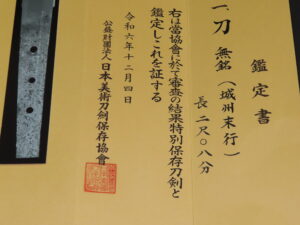 鑑定書
一、刀 無銘（城州末行）
長 二尺〇八分
右は當協會に於て審査の結果特別保存刀劍と
鑑定しこれを証する
令和六年十二月四日
公益財團法人日本美術刀劍保存協會